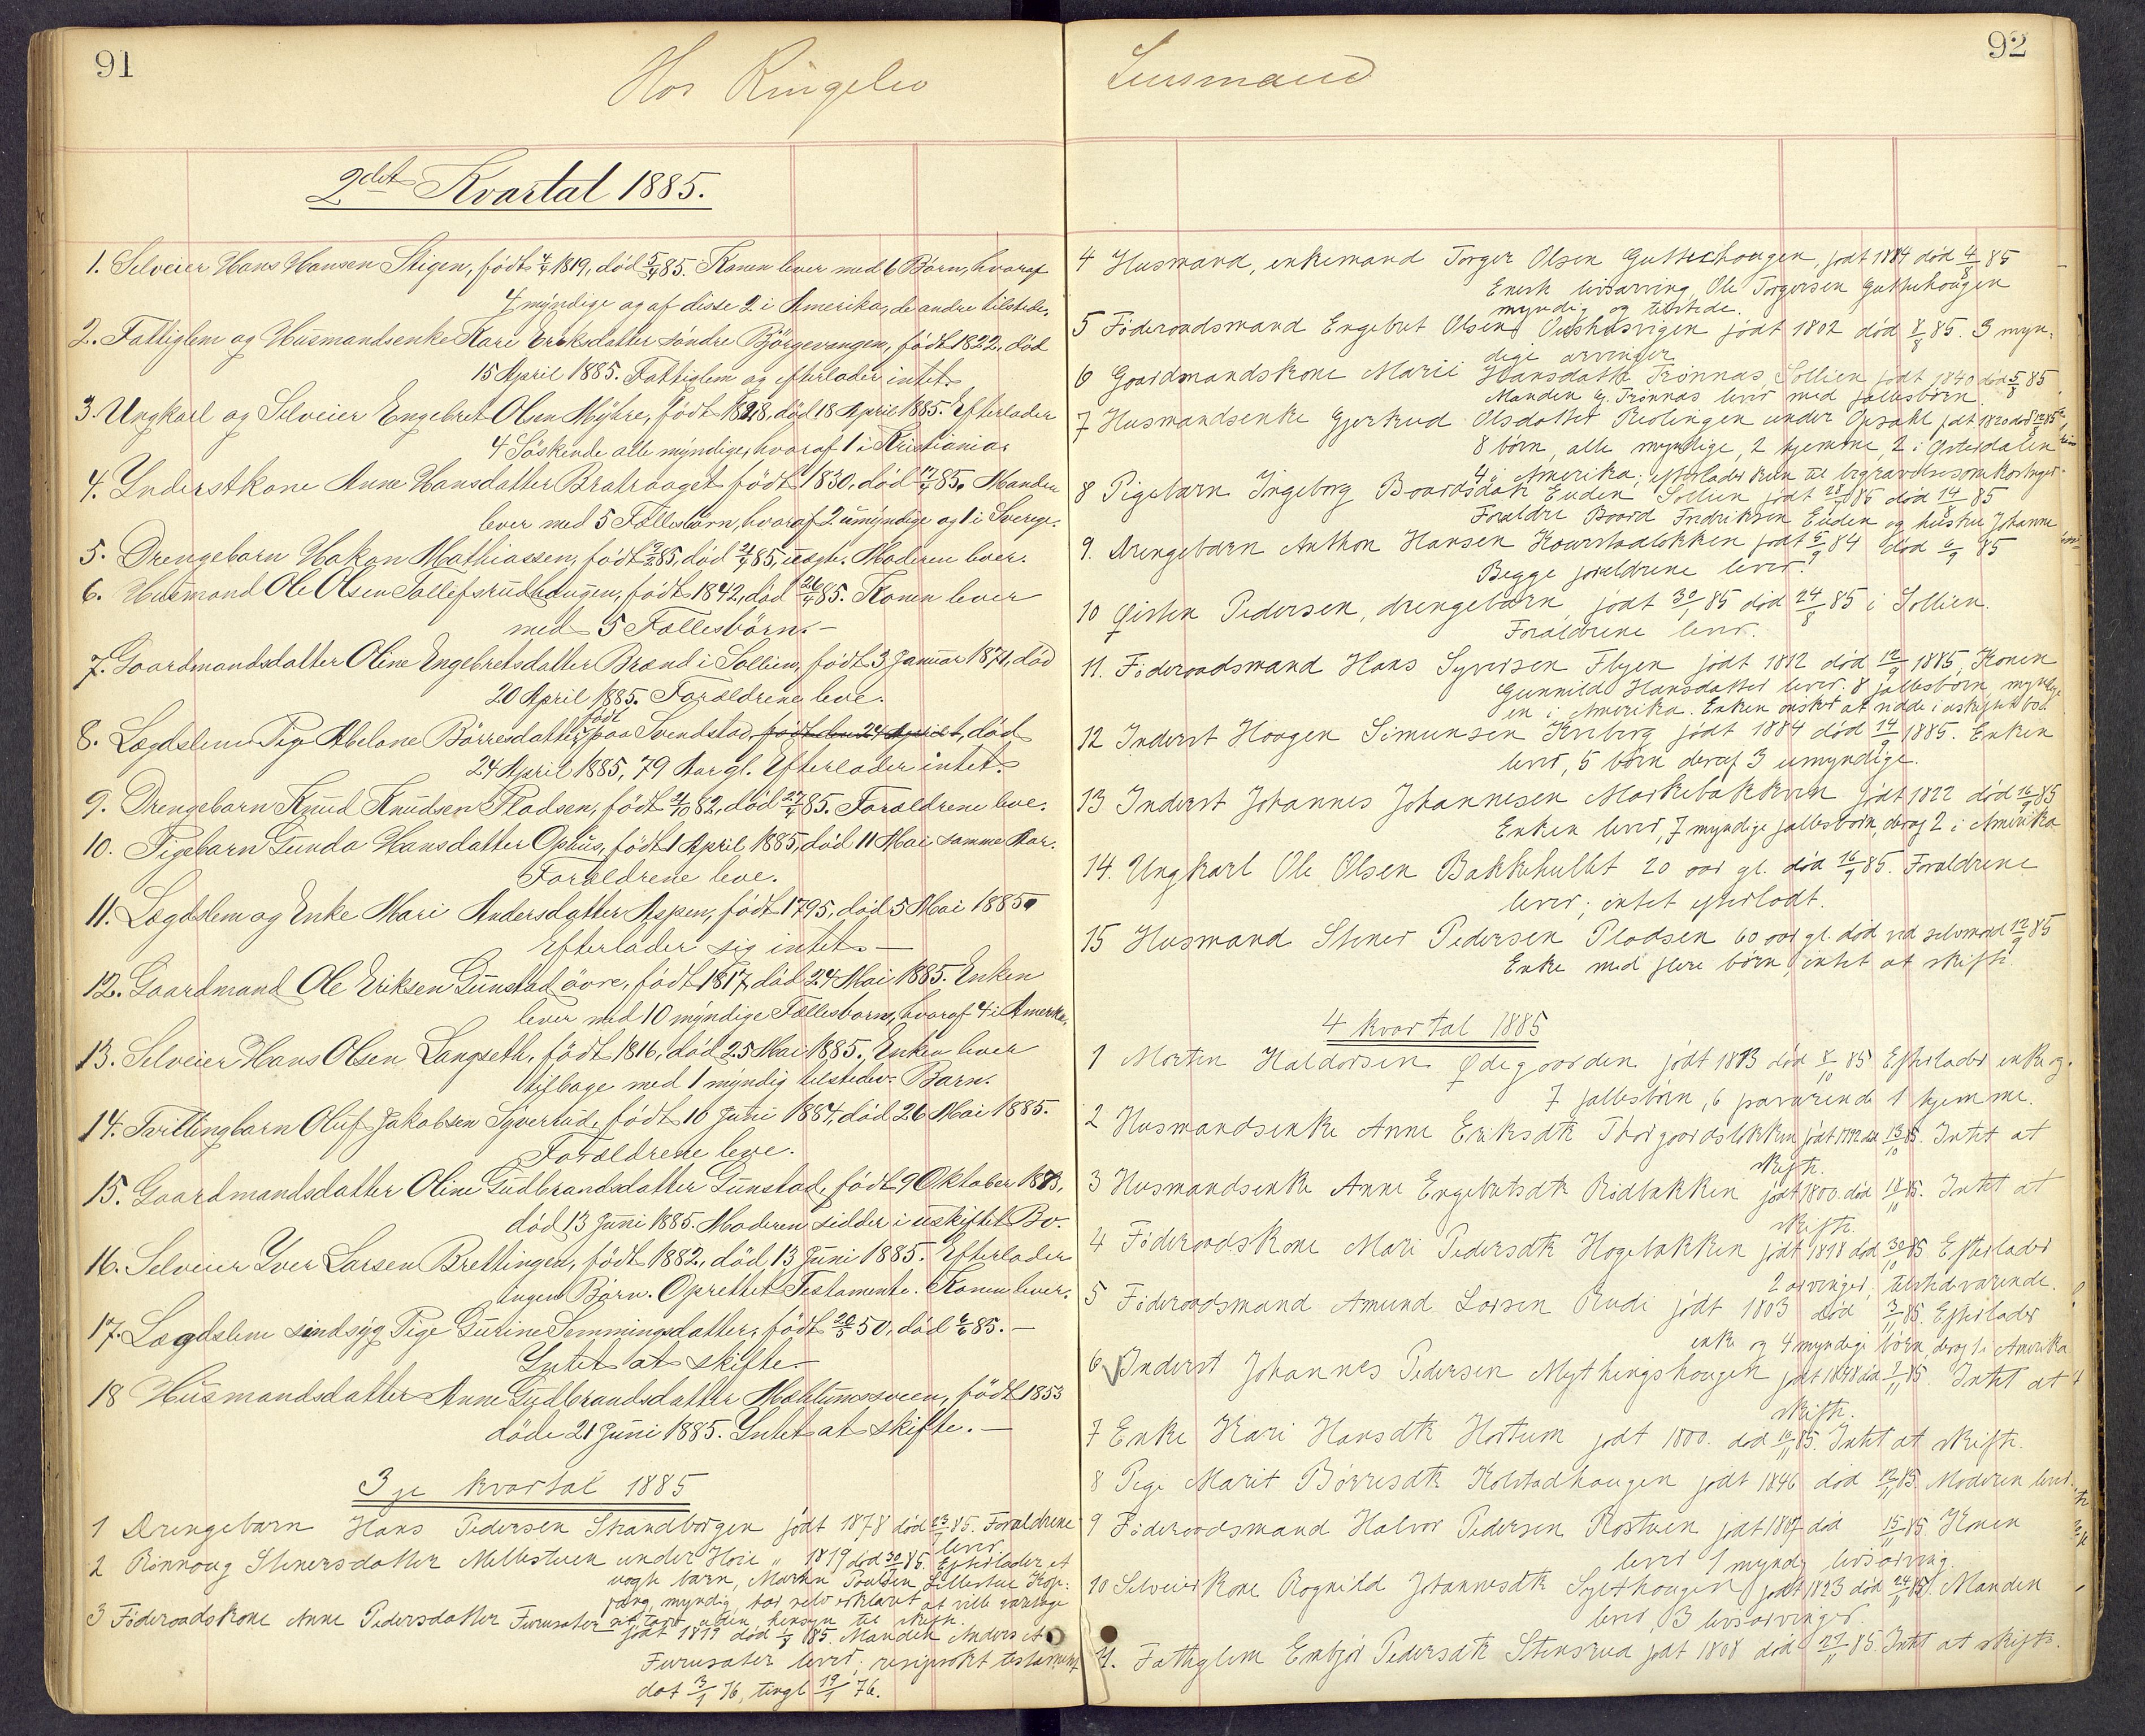 91
Hos Ringebu
2det Kvartal 1885.
1. Selveier Hans Hansen Stigen, født 4/4 1819, død 5/4 85. Konen lever med 6 Börn, hvoraf
4 mÿndige og af disse 2 i Amerika, de andre tilstede.
2. Fattiglem og Husmandsenke Kari Eriksdatter söndre Björgevangen, født 1822, död
15 April 1885. Fattiglem og efterlader intet.
3. Ungkarl og Selveier Engebret Olsen Mÿhre, födt 1828, död 18 April 1885. Efterlader
4 Söskende alle mÿndige, hvoraf 1 i Kristiania.
4. Ynderstkone Anne Hansdatter Bratraaget födt 1830, død 17/4 85. Manden
lever med 5 Fællesbörn, hvoraf 2 umÿndige og 1 i Sverige.
5. Drengebarn Hakon Mathiassen, födt 2/2 85, död 21/4 85, uægte. Moderen lever.
6. Husmand Ole Olsen Tollefsrudhaugen, födt 1842, död 26/4 85. Konen lever
med 5 Fællesbörn. –
7. Gaardmandsdatter Oline Engebretsdatter Brænd i Sollien, födt 3 Januar 1871, död
20 April 1885. Forældrene leve.
8. Lægdslem Pige Abelone Börresdatter, födt paa Svendstad, födt den 24 April t, död
24 April 1885, 79 Aar gl. Efterlader intet.
9. Drengebarn Knud Knudsen Pladsen, födt 2/10 82, död 27/4 85. Forældrene leve.
10. Pigebarn Gunda Hansdatter Ophus, födt 1 April 1885, död 11 Mai samme Aar.
Forældrene leve.
11. Lægdslem og Enke Mari Andersdatter Aspen, födt 1795, död 5 Mai 1885.
Efterlader sig intet. –
12. Gaardmand Ole Eriksen Gunstad övre, födt 1817, död 24 Mai 1885. Enken
lever med 10 mÿndige Fællesbörn, hvoraf 4 i Amerika.
13. Selveier Hans Olsen Langseth, födt 1816, död 25 Mai 1885. Enken lever
tilbage med 1 mÿndig tilstedev. Barn.
14. Tvillingbarn Oluf Jakobsen Sÿverrud, födt 10 Juni 1884, död 26 Mai 1885.
Forældrene leve.
15. Gaardmandsdatter Oline Gudbrandsdatter Gunstad, födt 9 Oktober 1873,
död 13 Juni 1885. Moderen sidder i uskiftet Bo.
16. Selveier Iver Larsen Brettingen, födt 1882, död 13 Juni 1885. Efterlader
ingen Börn. Oprettet Testamente. Konen lever.
17. Lægdslem sindsÿg Pige Gurine Semmingsdatter, födt 20/5 50, död 6/6 85. –
Intet at skifte. –
18 Husmandsdatter Anne Gudbrandsdatter Mæhlumssveen, födt 1853
döde 21 Juni 1885. Intet at skifte. –
3je kvartal 1885
1 Drengebarn Hans Pedersen Strandborgen födt 1878 död 23/7 85. Forældrene
lever
2 Rönnoug Stenersdatter Mellestuen under Hoie " 1819 död 30/7 85. Efterlader et
uægte barn, Marthin Poulsen Lillestue Kop:
pang, myndig, har selv erklæret at ville varetage
sit tarv uden hensyn til skifte.
3 Föderaadskone Anne Pedersdatter Furusæter
födt 1819 död 1/8 85. Manden Anders
Furusæter lever; resiprokt testament
dat 3/1 76, tingl 19/1 76.
92
Lensmand
4 Husmand, enkemand Torger Olsen Guttechougen, födt 1884 död 4/8 85
Enest livsarving Ole Torgersen Guttuhougen
myndig og tilstede.
5 Föderaadsmand Engebret Olsen födt 1802 död 8/8 85. 3 myn:
dige arvinger
6 Gaardmandskone Marie Hansdatter Trønnæs, Sollien födt 1840 död 5/8 85
Manden G. Trønnæs lever med fællesbörn.
7 Husmandsenke Gjertrud Olsdatter Kiolingen under Opsahl fdt 1820 död 12/8 85
8 börn, alle myndige, 2 hjemme, 2 i Østerdalen
4 i Amerika; efterlader kun til begravelsesomkostninger
8 Pigebarn Ingeborg Baardsdatr Enden Sollien födt 28/7 85 död 14/8 85
Forældre Baard Fredriksen Enden og hustru Johanne
9. Drengebarn Anthon Hansen Kourstadløkken födt 5/9 84 död 6/9 85
Begge forældrene lever.
10 Østen Pedersen, drengebarn födt 30/1 85 död 24/8 85 i Sollien.
Forældrene lever.
11. Föderaadsmand Hans Syversen Flyen födt 1812 död 12/9 1885, Konen
Gunnild Hansdatter lever. 8 fællesbörn, myndige
en i Amerika. Enken önsker at sidde i uskiftet bo
12 Inderst Haagen Simunsen Kriberg födt 1884 död 14/9 1885. Enken
lever, 5 börn deraf 3 umyndige.
13 Inderst Johannes Johannesen Morkebakken födt 1822 död 16/9 85
Enken lever, 7 myndige fællesbörn, deraf 2 i Amerika
14. Ungkarl Ole Olsen Bakkehullet 20 aar gl. död 16/9 85. Forældrene
lever; intet efterladt.
15 Husmand Stener Pedersen Pladsen 60 aar gl. död ved selvmord 12/9 85
Enke med flere börn, intet at skifte.
4 kvartal 1885
1 Morten Haldorsen Ødegaarden födt 1813 död 8/10 85 Efterlader enke og
7 fællesbörn, 6 fraværende 1 hjemme.
2 Husmandsenke Anne Eriksdtr Thorgaardsløkken födt 1792 död 13/10 85. Intet at
skifte.
3 Husmandsenke Anne Engebretsdtr Rödbakken födt 1800. död 18/11 85. Intet at
skifte.
4 Föderaadskone Mari Pedersdtr Hagebakken födt 1818 död 30/10 85. Efterlader
2 arvinger, tilstedeværende.
5 Föderaadsmand Amund Larsen Rudi födt 1803 död 3/11 85. Efterlader
enke og 4 myndige börn, deraf 1 i Amerika
6 Inderst Johannes Pedersen Mythingshougen födt 1848 död 7/11 85. Intet at
skifte.
7 Enke Kari Hansdtr Hortum födt 1800. död 10/11 85. Intet at skifte.
8 Pige Marit Börresdtr Kolstadhaugen födt 1846 död 12/11 85. Moderen lever.
9 Föderaadsmand Halvor Pedersen Rostuen födt 1807 död 15/11 85 Konen
lever 1 myndig livsarving.
10 Selveierkone Rognild Johannesdtr Sylthougen födt 1823 död 24/11 85. Manden
lever, 3 livsarvinger.
11. Fattiglem Embjör Pedersdtr Stensrud födt 1808 död 27/11 85. Intet at skifte.